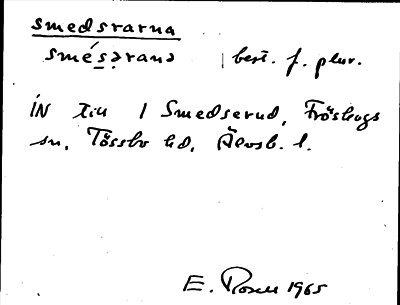 smedsrarna
smésərana | best. f. plur.
IN till 1 Smedserud, Fröskogs
sn, Tössbo hd, Älvsb. l.
E. Rosell 1965